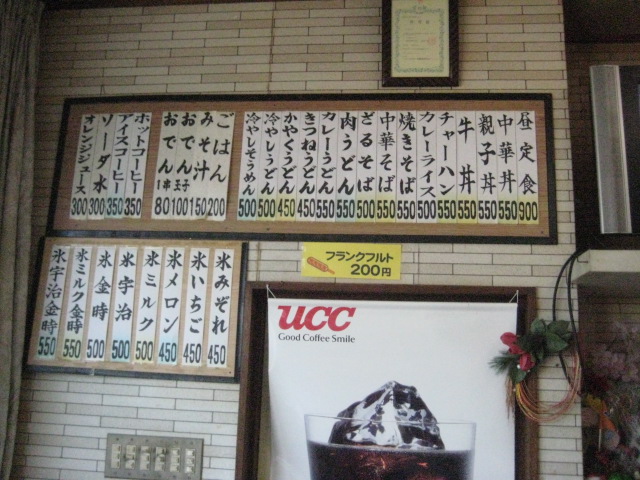 昼定食 900
中華丼 550
親子丼 550
牛丼 550
チャーハン 550
カレーライス 500
焼きそば 550
中華そば 550
ざるそば 500
肉うどん 550
カレーうどん 550
きつねうどん 450
かやくうどん 450
冷やしうどん 500
冷やしそうめん 500
ごはん 200
みそ汁 150
おでん 玉子 100
おでん 1串 80
ホットコーヒー 350
アイスコーヒー 350
ソーダ水 300
オレンジジュース 300
氷みぞれ 450
氷いちご 450
氷メロン 450
氷ミルク 500
氷宇治 500
氷金時 500
氷ミルク金時 550
氷宇治金時 550
フランクフルト
200円
UCC
Good Coffee Smile